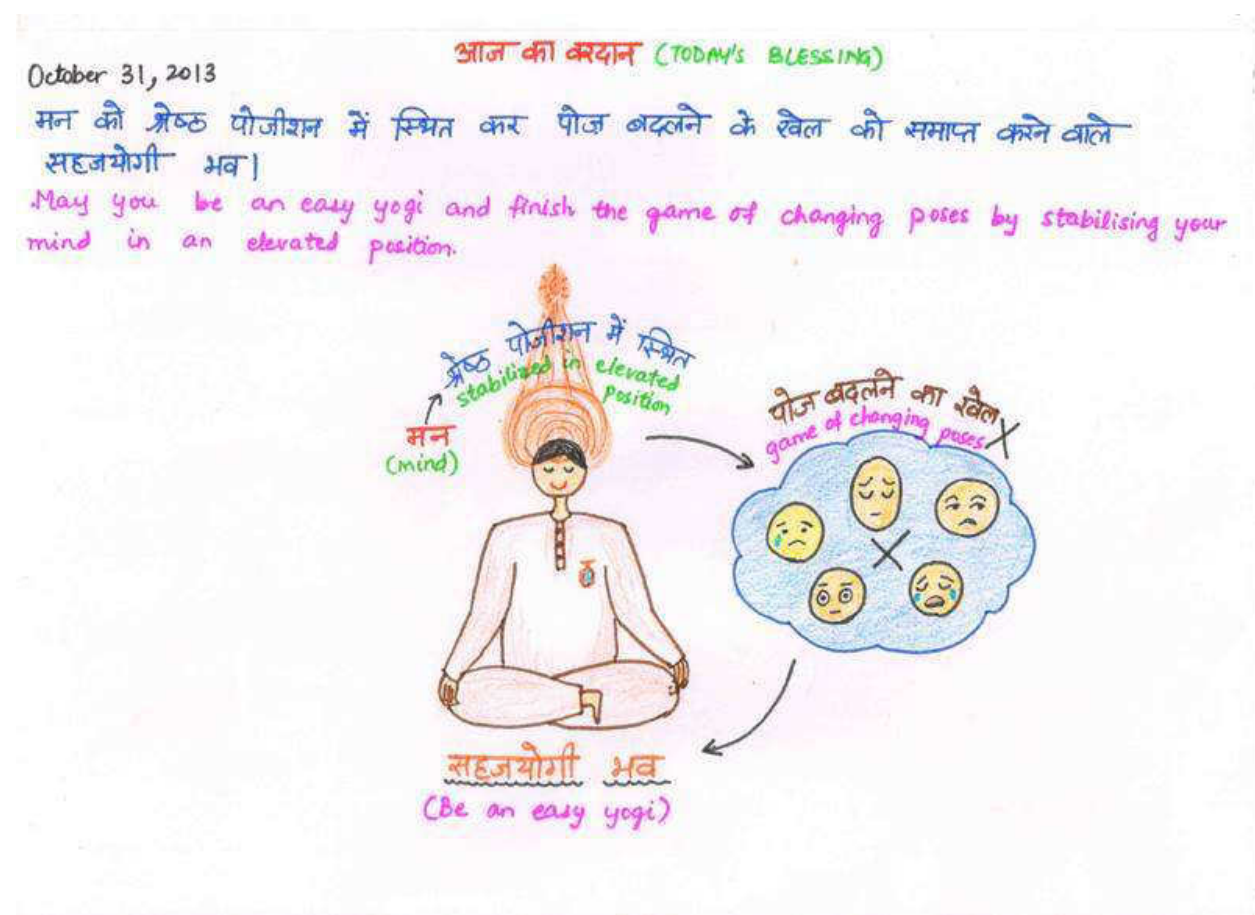 आज का वरदान (TODAY'S BLESSING)
October 31, 2013
मन को श्रेष्ठ पोजीशन में स्थित कर पोज़ बदलने के खेल को समाप्त करने वाले
सहजयोगी भव।
May you be an easy yogi and finish the game of changing poses by stabilising your
mind in an elevated position.
श्रेष्ठ पोजीशन में स्थित
stabilized in elevated
position
मन
(mind)
पोज बदलने का खेल
game of changing poses
सहजयोगी भव
(Be an easy yogi)